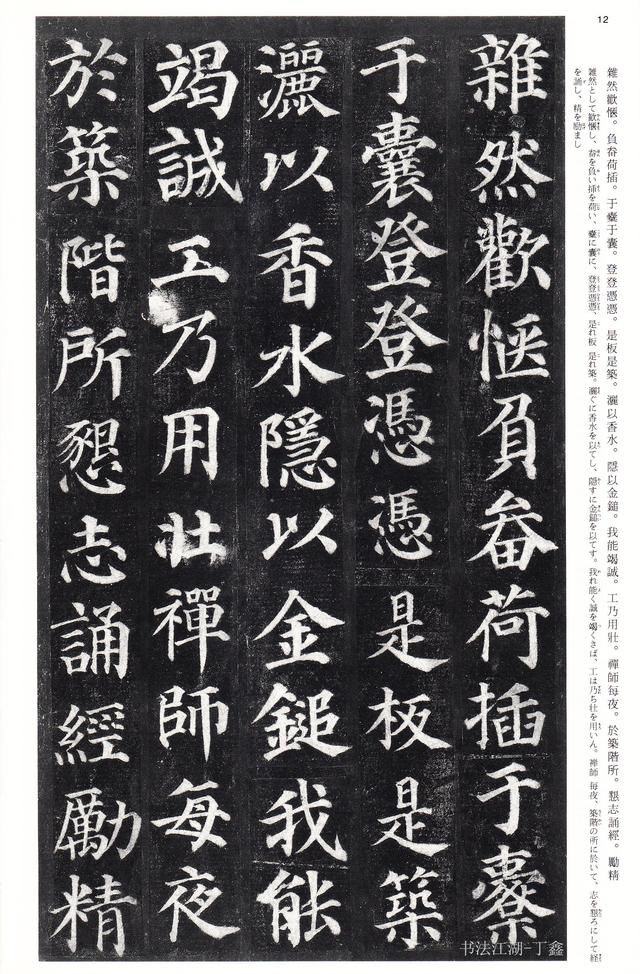 12
雜然歡愜。負畚荷插。于橐于囊。登登憑憑。是板是築。灑以香水。隱以金鎚。我能竭誠。工乃用壯。禪師每夜。於築階所。懇志誦經。勵精
雜然として歡愜し、畚を負い插を荷い、橐に囊に、登登憑憑、是れ板 是れ築。灑ぐに香水を以てし、隱すに金鎚を以てす。我れ能く誠を竭くさば、工は乃ち壯を用いん。禪師 每夜、築階の所に於いて、志を懇ろにして經
を誦し、精を勵まし
雜然歡愜負畚荷插于橐
于囊登登憑憑是板是築
灑以香水隱以金鎚我能
竭誠工乃用壯禪師每夜
於築階所懇志誦經勵精
书法江湖-丁鑫